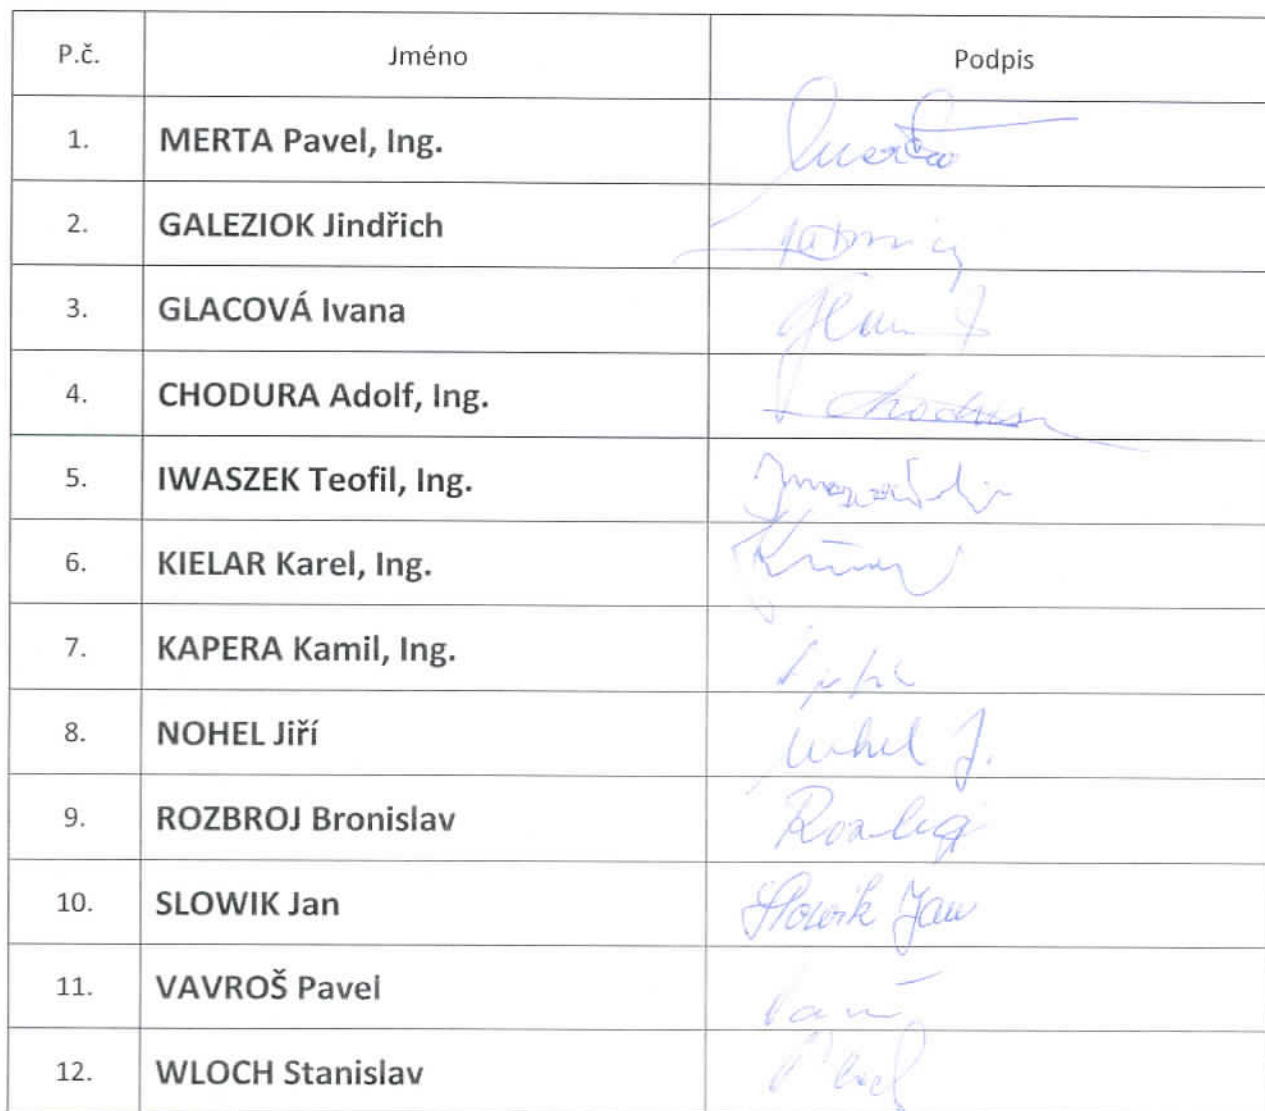 P.č. Jméno Podpis
1. MERTA Pavel, Ing. Merta
2. GALEZIOK Jindřich
3. GLACOVÁ Ivana
4. CHODURA Adolf, Ing. Chodura
5. IWASZEK Teofil, Ing.
6. KIELAR Karel, Ing.
7. KAPERA Kamil, Ing.
8. NOHEL Jiří Nohel J.
9. ROZBROJ Bronislav
10. SLOWIK Jan Slowik Jan
11. VAVROŠ Pavel
12. WLOCH Stanislav